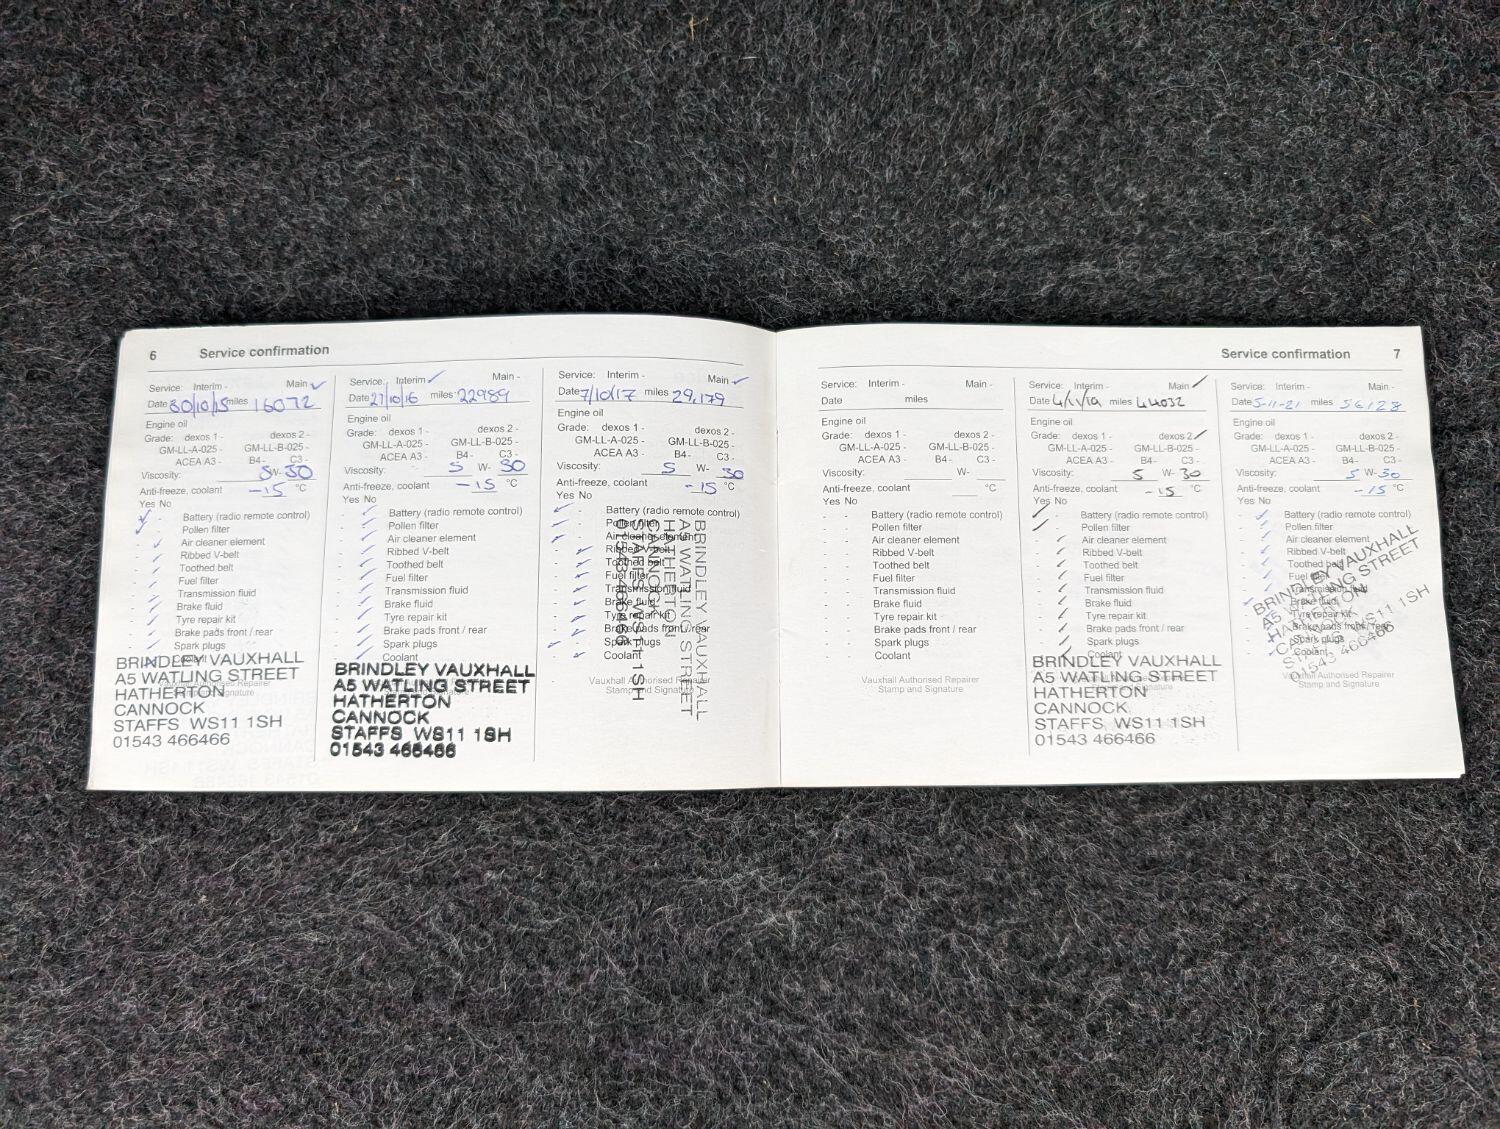 6 Service confirmation
Service: Interim - Main ✓
Date 30/10/15 miles 16072
Engine oil
Grade: dexos 1 - dexos 2 -
GM-LL-A-025 - GM-LL-B-025 -
ACEA A3 - B4 - C3 -
Viscosity: 5 W- 30
Anti-freeze, coolant -15 °C
Yes No
Battery (radio remote control)
Pollen filter
Air cleaner element
Ribbed V-belt
Toothed belt
Fuel filter
Transmission fluid
Brake fluid
Tyre repair kit
Brake pads front / rear
Spark plugs
Coolant
Vauxhall Authorised Repairer
Stamp and Signature
BRINDLEY VAUXHALL
A5 WATLING STREET
HATHERTON
CANNOCK
STAFFS WS11 1SH
01543 466466
Service: Interim ✓ Main -
Date 21/10/16 miles 22989
Engine oil
Grade: dexos 1 - dexos 2 -
GM-LL-A-025 - GM-LL-B-025 -
ACEA A3 - B4 - C3 -
Viscosity: 5 W- 30
Anti-freeze, coolant -15 °C
Yes No
Battery (radio remote control)
Pollen filter
Air cleaner element
Ribbed V-belt
Toothed belt
Fuel filter
Transmission fluid
Brake fluid
Tyre repair kit
Brake pads front / rear
Spark plugs
Coolant
BRINDLEY VAUXHALL
A5 WATLING STREET
HATHERTON
CANNOCK
STAFFS WS11 1SH
01543 466466
Service: Interim - Main ✓
Date 7/10/17 miles 29,179
Engine oil
Grade: dexos 1 - dexos 2 -
GM-LL-A-025 - GM-LL-B-025 -
ACEA A3 - B4 - C3 -
Viscosity: 5 W- 30
Anti-freeze, coolant -15 °C
Yes No
Battery (radio remote control)
Pollen filter
Air cleaner element
Ribbed V-belt
Toothed belt
Fuel filter
Transmission fluid
Brake fluid
Tyre repair kit
Brake pads front / rear
Spark plugs
Coolant
Vauxhall Authorised Repairer
Stamp and Signature
BRINDLEY VAUXHALL
A5 WATLING STREET
HATHERTON
CANNOCK
STAFFS WS11 1SH
01543 466466
Service confirmation 7
Service: Interim - Main -
Date miles
Engine oil
Grade: dexos 1 - dexos 2 -
GM-LL-A-025 - GM-LL-B-025 -
ACEA A3 - B4 - C3 -
Viscosity: W-
Anti-freeze, coolant °C
Yes No
- - Battery (radio remote control)
- - Pollen filter
- - Air cleaner element
- - Ribbed V-belt
- - Toothed belt
- - Fuel filter
- - Transmission fluid
- - Brake fluid
- - Tyre repair kit
- - Brake pads front / rear
- - Spark plugs
- - Coolant
Vauxhall Authorised Repairer
Stamp and Signature
Service: Interim - Main ✓
Date 4/11/19 miles 44032
Engine oil
Grade: dexos 1 - dexos 2 ✓
GM-LL-A-025 - GM-LL-B-025 -
ACEA A3 - B4 - C3 -
Viscosity: 5 W- 30
Anti-freeze, coolant -15 °C
Yes No
Battery (radio remote control)
Pollen filter
Air cleaner element
Ribbed V-belt
Toothed belt
Fuel filter
Transmission fluid
Brake fluid
Tyre repair kit
Brake pads front / rear
Spark plugs
Coolant
BRINDLEY VAUXHALL
A5 WATLING STREET
HATHERTON
CANNOCK
STAFFS WS11 1SH
01543 466466
Service: Interim - Main -
Date 5-11-21 miles 56128
Engine oil
Grade: dexos 1 - dexos 2 -
GM-LL-A-025 - GM-LL-B-025 -
ACEA A3 - B4 - C3 -
Viscosity: 5 W- 30
Anti-freeze, coolant -15 °C
Yes No
Battery (radio remote control)
Pollen filter
Air cleaner element
Ribbed V-belt
Toothed belt
Fuel filter
Transmission fluid
Brake fluid
Tyre repair kit
Brake pads front / rear
Spark plugs
Coolant
Vauxhall Authorised Repairer
Stamp and Signature
BRINDLEY VAUXHALL
A5 WATLING STREET
HATHERTON
CANNOCK
STAFFS WS11 1SH
01543 466466